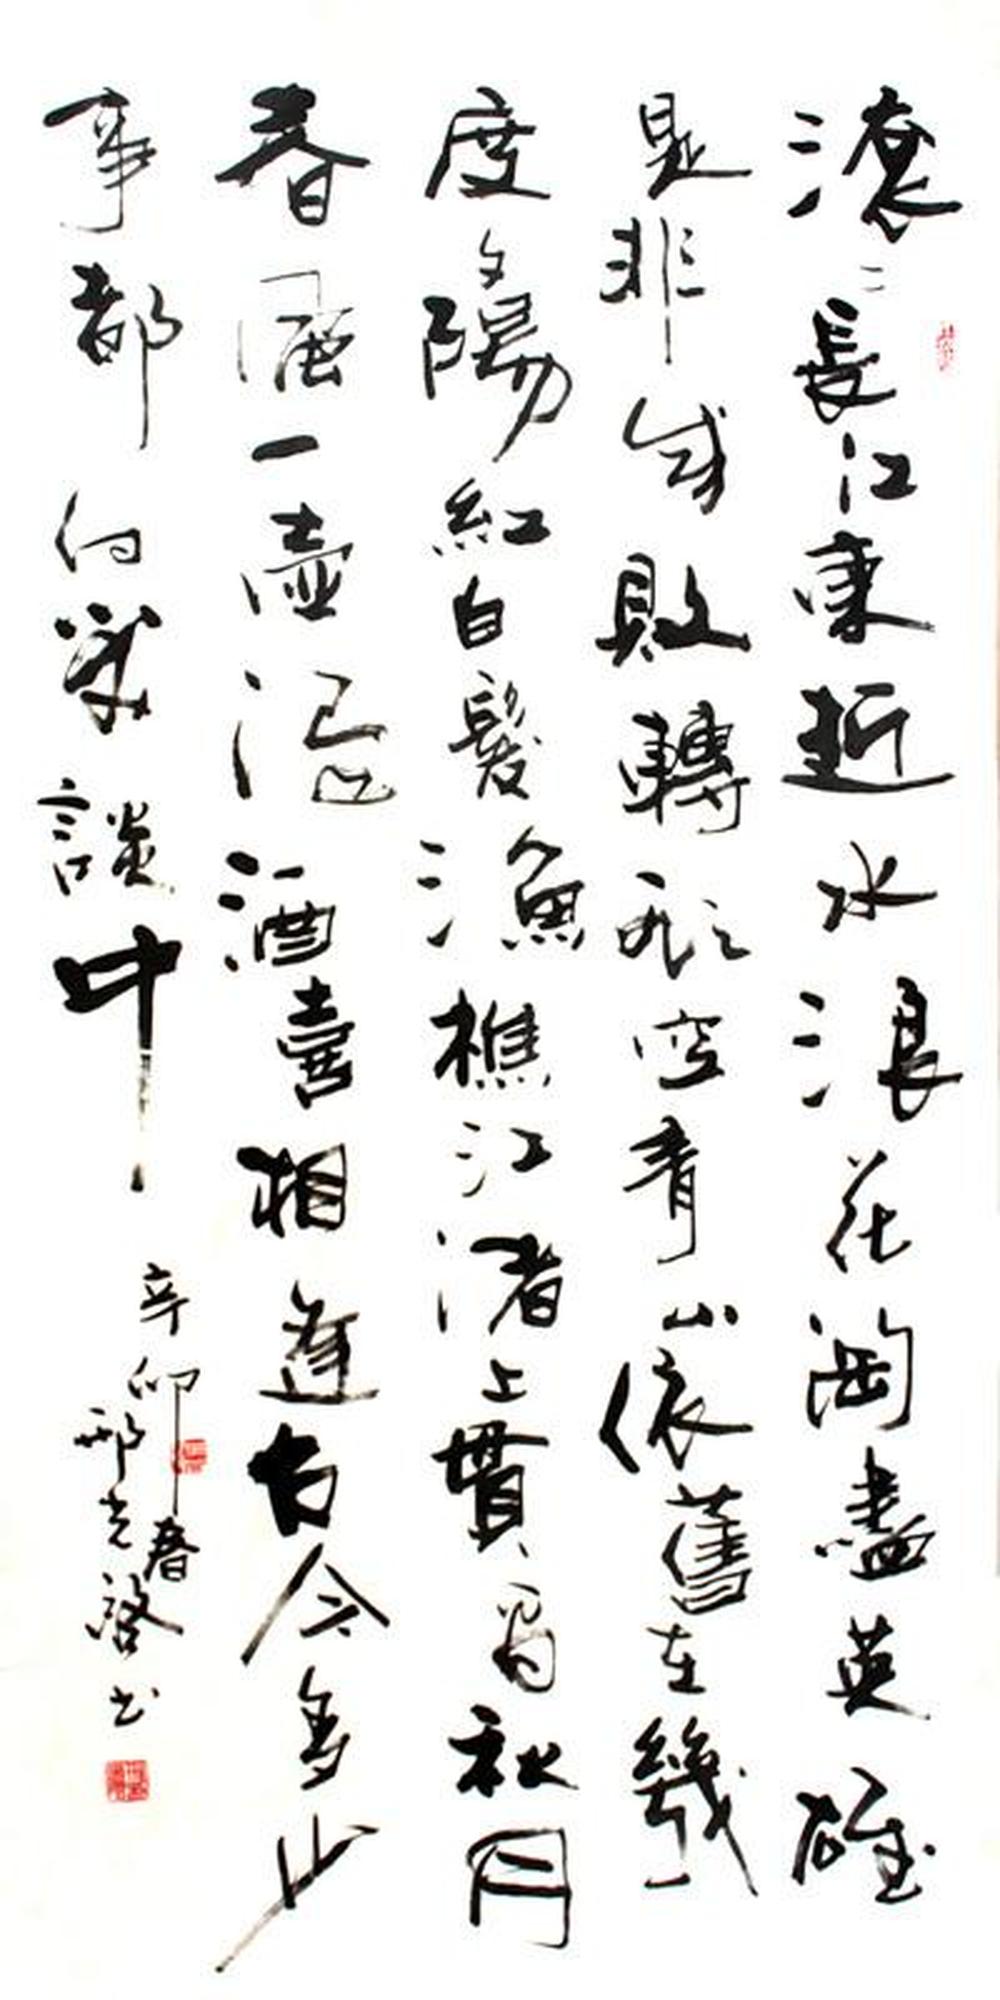 滚々長江東逝水浪花淘盡英雄
是非成敗轉頭空青山依舊在幾
度夕陽紅白髮漁樵江渚上慣看秋月
春風一壺濁酒喜相逢古今多少
事都付笑談中
辛卯春
邢光啓书